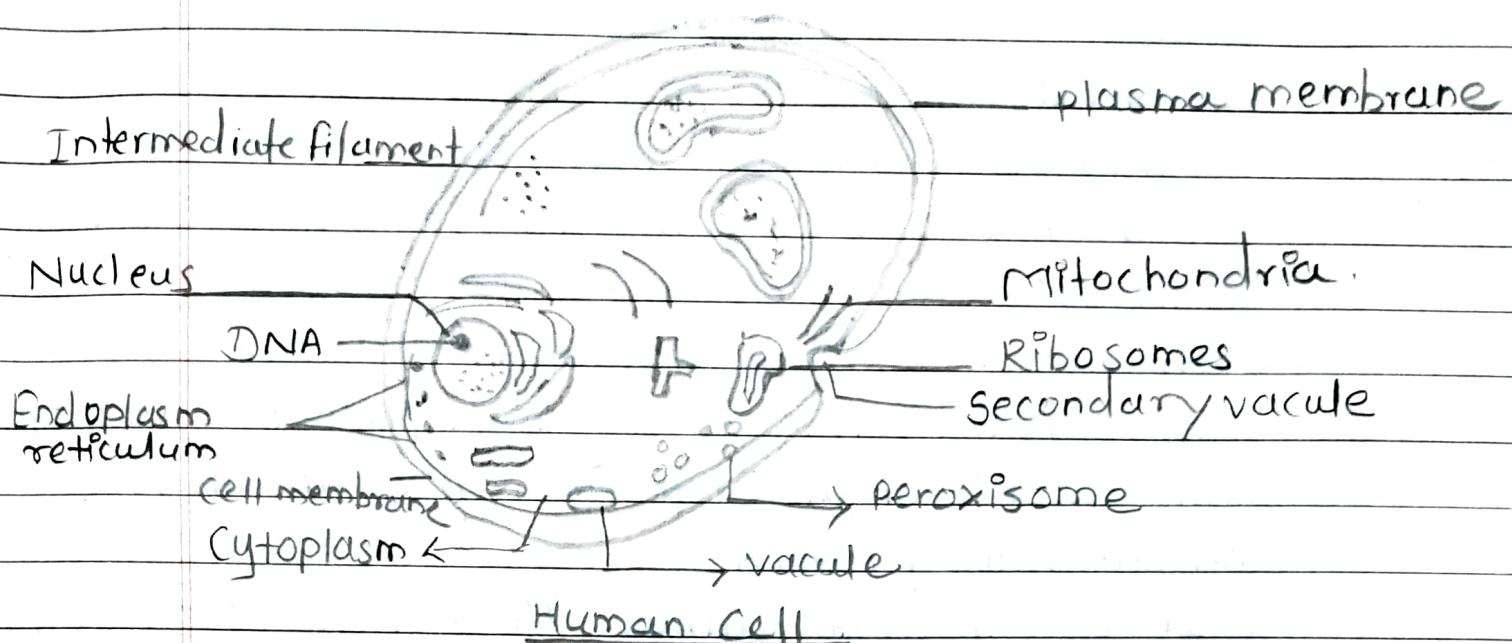 plasma membrane
Intermediate filament
Nucleus
Mitochondria.
DNA
Ribosomes
Secondary vacule
Endoplasm
reticulum
cell membrane
peroxisome
Cytoplasm
vacule
Human Cell